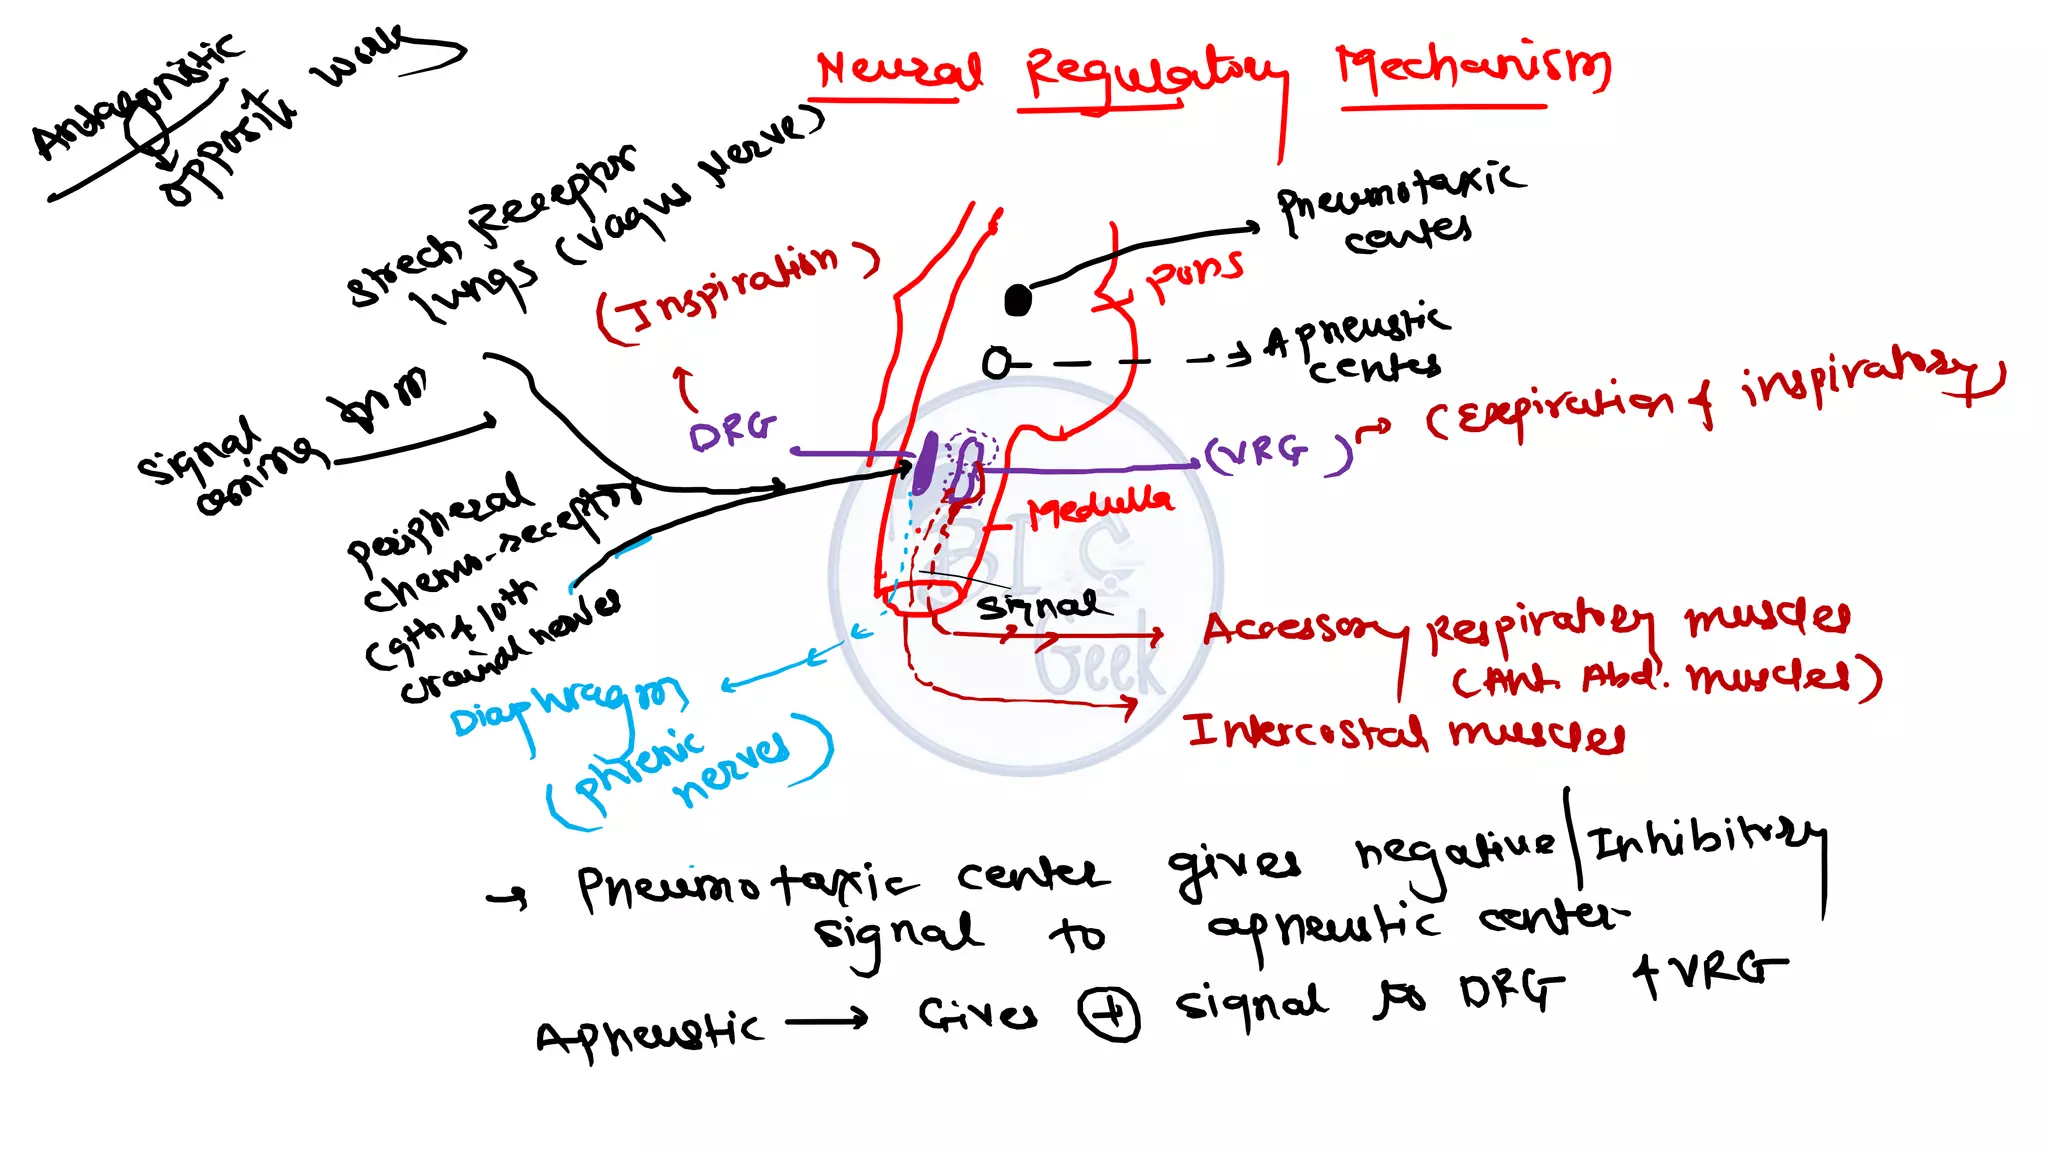 Neural Regulatory Mechanism
Antagonistic
opposite work
Strech Receptor
lungs (Vagus Nerve)
(Inspiration)
Pneumotaxic
center
Pons
Apneustic
center
DRG
(VRG) → (Expiration & inspiratory)
Signal
coming from
Medulla
Peripheral
chemo-receptor
(9th & 10th
cranial nerves
BIO
Geek
Signal
Accessory Respiratory muscles
(Ant. Abd. muscles)
Diaphragm
(phrenic
nerves)
Intercostal muscles
→ Pneumotaxic center gives negative/Inhibitory
signal to apneustic center
Apneustic → Gives ⊕ signal to DRG & VRG